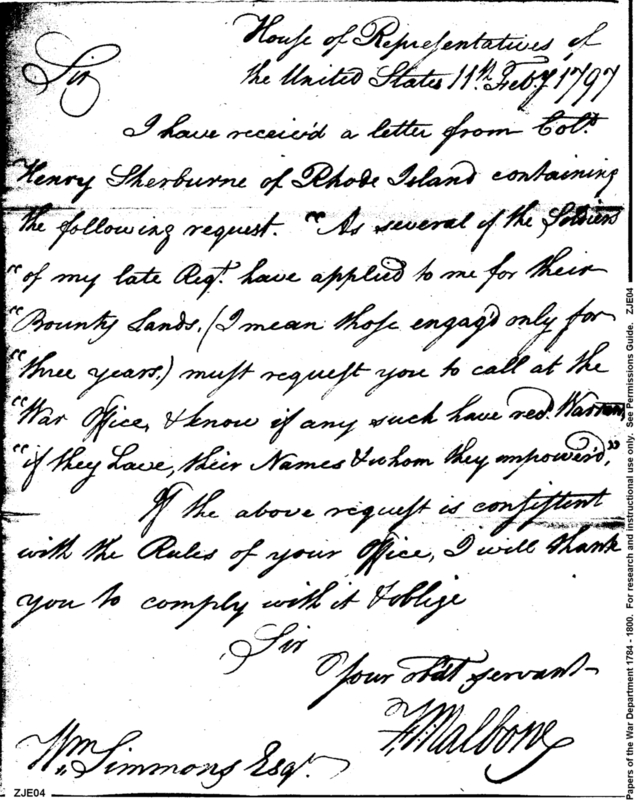 House of Representatives of
Sir the United States 11th. Feby 1797
I have receiv'd a letter from Colo.
Henry Sherburne of Rhode Island containing
the following request. "As several of the Soldiers
"of my late Regt. have applied to me for their
"Bounty Lands. (I mean those engag'd only for
"three years.) must request you to call at the
"War Office, & know if any such have recd. Warrants,
"if they have, their Names & whom they empower'd,"
If the above request is consistent
with the Rules of your Office, I will thank
you to comply with it & oblige
Sir
Your obdt servant
F. Malbone
Wm. Simmons Esqr.
ZJE04
Papers of the War Department 1784 - 1800. For research and instructional use only. See Permissions Guide. ZJE04